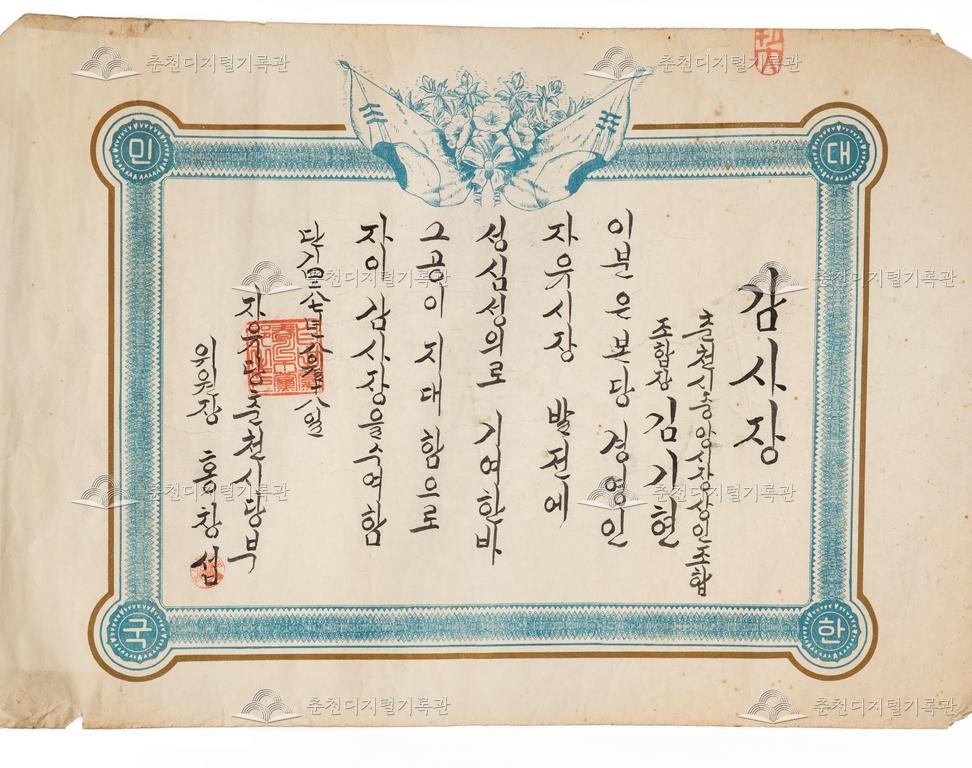 감사장
춘천시중앙시장상인조합
조합장 김기현
이분은 본당 경영인
자유시장 발전에
성심성의로 기여한바
그 공이 지대함으로
자이 감사장을 수여함
단기四二八七年
자유당춘천시당부
위원장 홍창섭
대
한
민
국
춘천디지털기록관
춘천디지털기록관
춘천디지털기록관
춘천디지털기록관
춘천디지털기록관
춘천디지털기록관
춘천디지털기록관
춘천디지털기록관